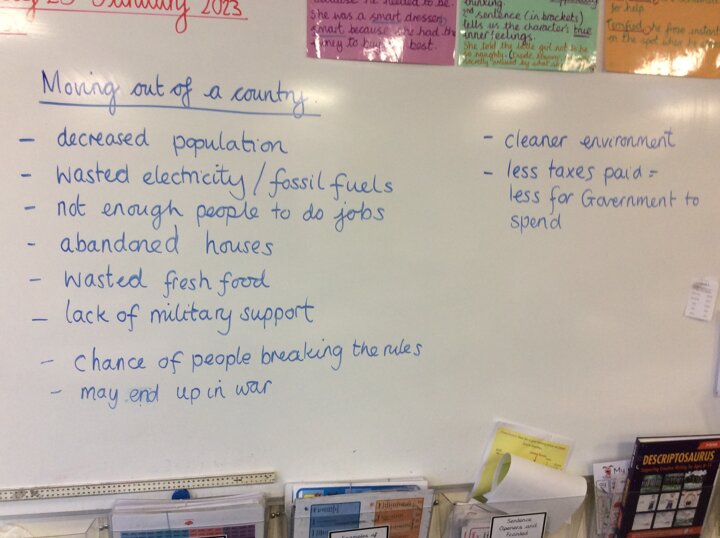 23 January 2023
She was a smart dresser,
smart because she had the
money to buy best.
thinking.
2nd sentence (in brackets)
tells us the character's true
inner feelings.
She told the little girl not to be
for help.
Moving out of a country
- decreased population
- wasted electricity / fossil fuels
- not enough people to do jobs
- abandoned houses
- wasted fresh food
- lack of military support
- chance of people breaking the rules
- may end up in war
- cleaner environment
- less taxes paid =
less for Government to
spend
DESCRIPTOSAURUS
Sentence
Openers and